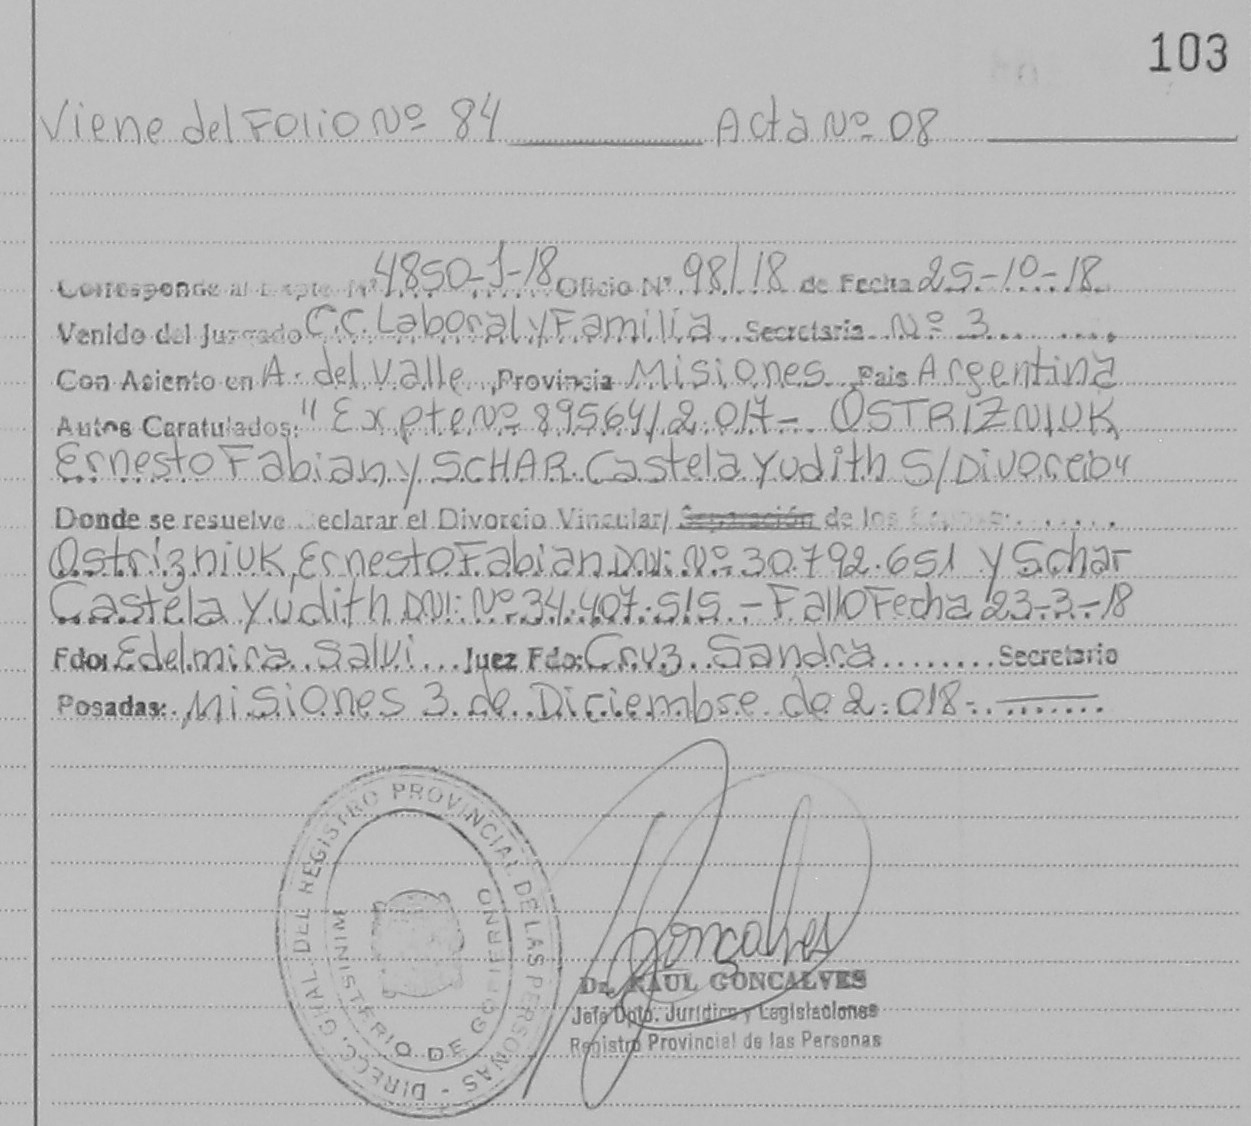 103
Viene del Folio Nº 84 Acta Nº 08
Corresponde al Expte Nº 4850-J-18 Oficio Nº 98/18 de Fecha 25-10-18
Venido del Juzgado C.C. Laboral y Familia Secretaria Nº 3
Con Asiento en A. del Valle, Provincia Misiones Pais Argentina
Autos Caratulados: "Expte Nº 89564/2.017- OSTRIZNIUK
Ernesto Fabian y SCHAR Castela Yudith S/Divorcio"
Donde se resuelve eclarar el Divorcio Vincular/ Separación de los
Ostrizniuk, Ernesto Fabian DNI: Nº 30.792.651 y Schar
Castela Yudith DNI: Nº 34.407.515.- Fallo Fecha 23-3-18
Fdo: Edelmira Salvi Juez Fdo: Cruz Sandra Secretario
Posadas: Misiones 3 de Diciembre de 2.018.
DIRECC. GRAL. DEL REGISTRO PROVINCIAL DE LAS PERSONAS -
MINISTERIO DE GOBIERNO
Goncalves
Dr. RAUL GONCALVES
Jefe Dpto. Jurídico y Legislaciones
Registro Provincial de las Personas